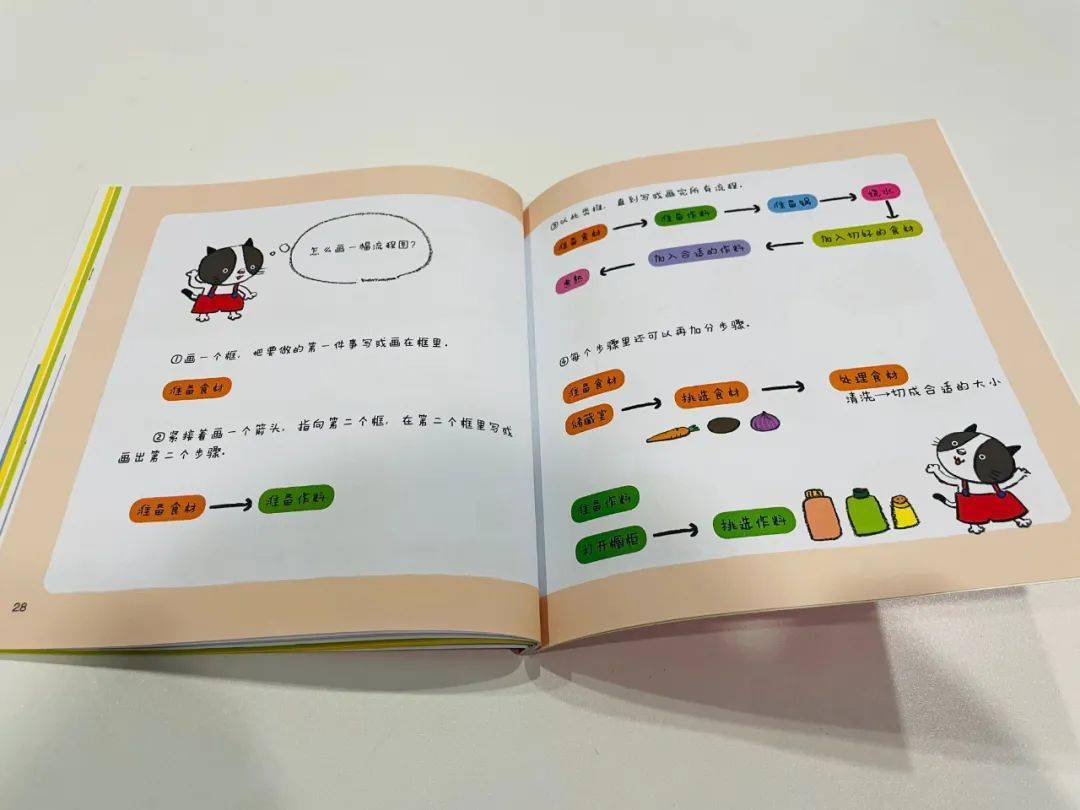 怎么画一幅流程图？
①画一个框，把要做的第一件事写或画在框里。
准备食材
②紧接着画一个箭头，指向第二个框，在第二个框里写或
画出第二个步骤。
准备食材 准备作料
28
③以此类推，直到写或画完所有流程。
准备食材 准备作料 准备锅 烧水
加入合适的作料 加入切好的食材
煮熟
④每个步骤里还可以再加分步骤。
准备食材
储藏室 挑选食材 处理食材
清洗→切成合适的大小
准备作料
打开橱柜 挑选作料